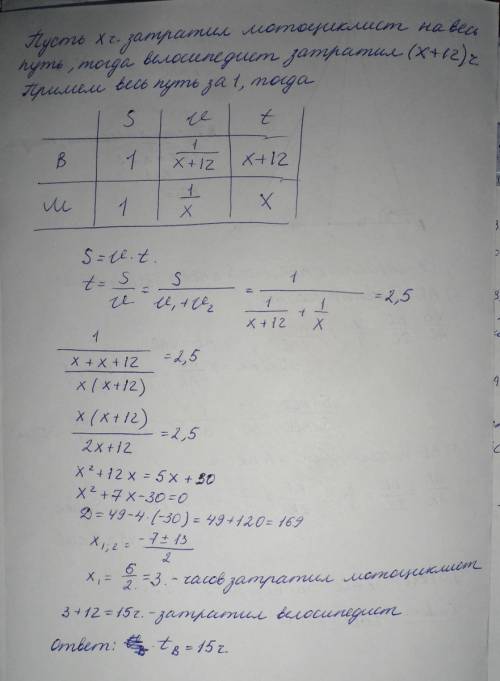 Пусть x ч. затратил мотоциклист на весь
путь, тогда велосипедист затратил (x+12) ч
Примем весь путь за 1, тогда
S v t
В 1 1/(x+12) x+12
М 1 1/x x
S = v · t.
t = S/v = S/(v₁+v₂) = 1/(1/(x+12) + 1/x) = 2,5
1/((x+x+12)/(x(x+12))) = 2,5
x(x+12)/(2x+12) = 2,5
x²+12x=5x+30
x²+7x-30=0
D=49-4·(-30)=49+120=169
x₁,₂ = (-7±13)/2
x₁ = 6/2 = 3. - часов затратил мотоциклист
3+12=15ч. - затратил велосипедист
Ответ: t_в = 15ч.